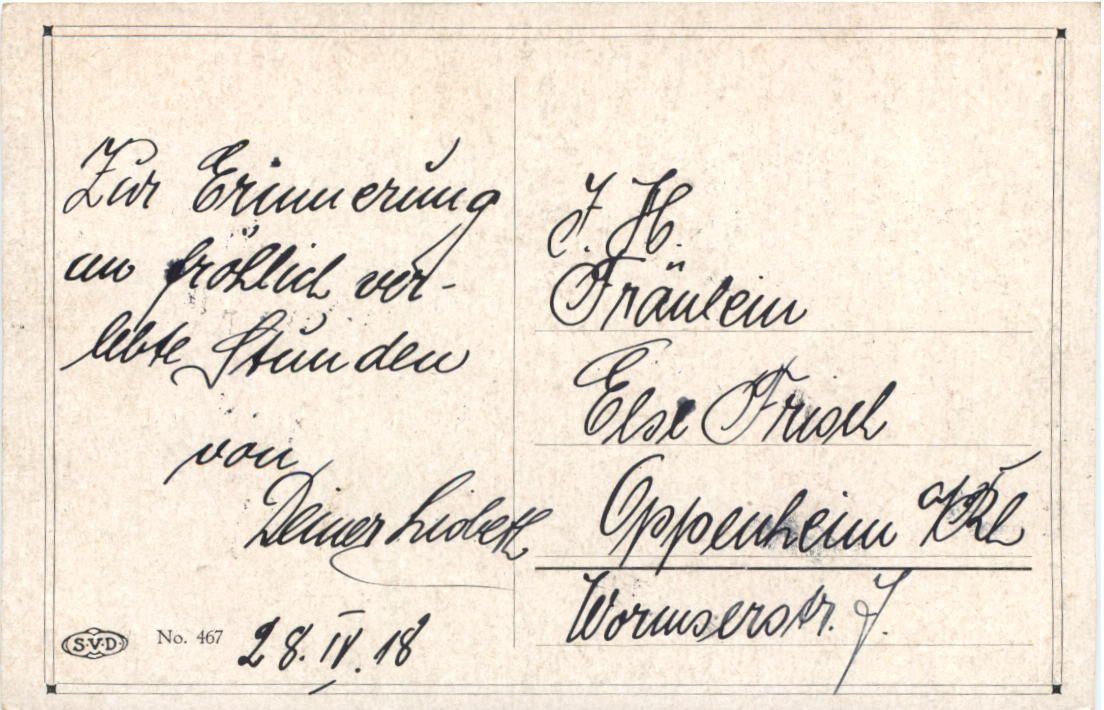 Zur Erinnerung
an fröhlich ver-
lebte Stunden
von
Deiner Lisbeth
28. IV. 18
S.V.D.
No. 467
J. H.
Fräulein
Else Frisch
Oppenheim a/Rh
Wormserstr. 7.